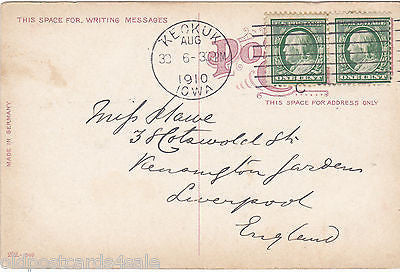 THIS SPACE FOR WRITING MESSAGES
KEOKUK
AUG
30 6-30PM
1910
IOWA
Po
C
THIS SPACE FOR ADDRESS ONLY
ONE CENT
ONE CENT
MADE IN GERMANY
Miss Hawe
3 Cotswold St
Kensington Gardens
Liverpool
England
oldpostcards4sale